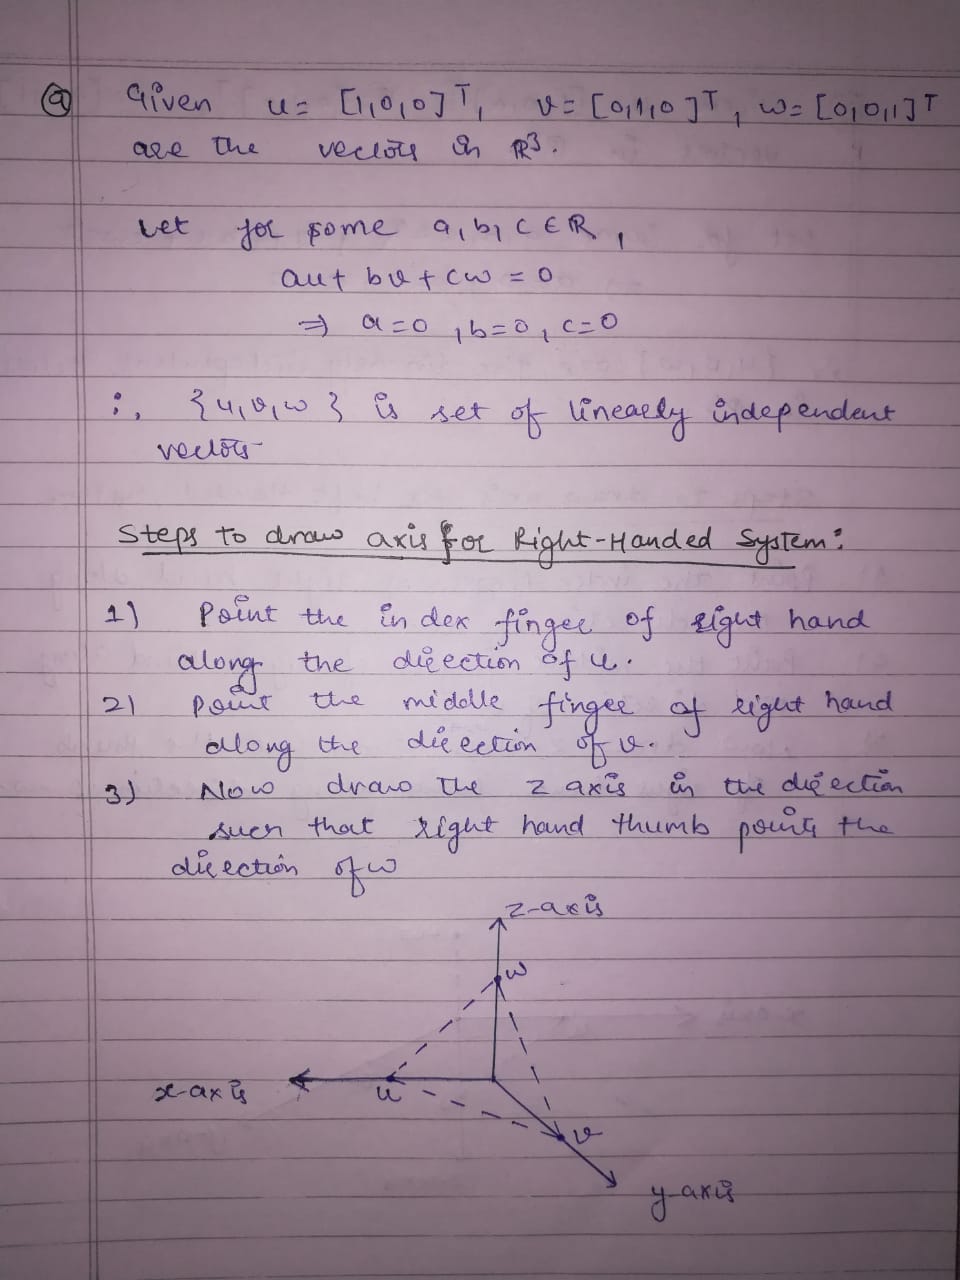 ⓐ Given u= [1,0,0]ᵀ, v= [0,1,0]ᵀ, w= [0,0,1]ᵀ
are the vectors in ℝ³.
Let for some a,b,c ∈ ℝ,
au+ bv + cw = 0
⇒ a=0, b=0, c=0
∴, {u,v,w} is set of linearly independent
vectors
Steps to draw axis for Right-Handed System:
1) Point the index finger of right hand
along the direction of u.
2) Point the middle finger of right hand
along the direction of v.
3) Now draw the z axis in the direction
such that right hand thumb points the
direction of w
z-axis
w
x-axis
u
v
y-axis